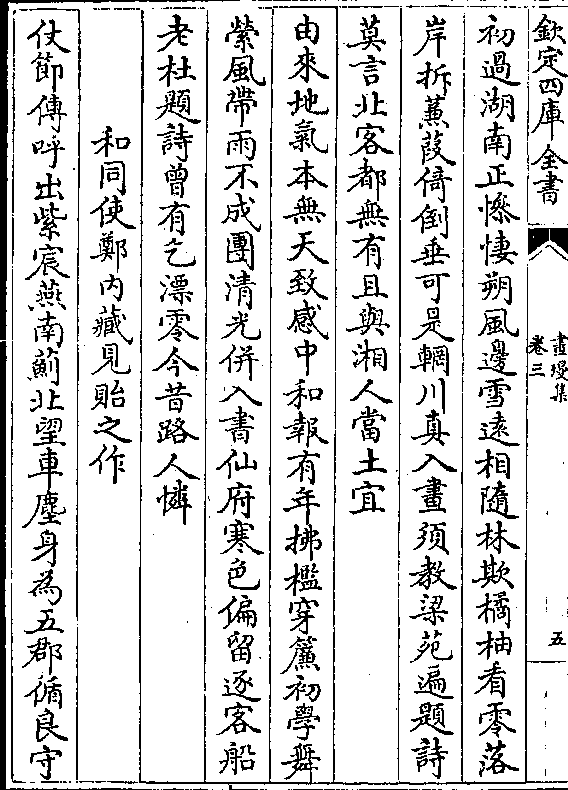 欽定四庫全書
畫墁集
卷三
五
初過湖南正慘悽朔風邊雪遠相隨林欺橘柚看零落
岸拆蒹葭倚倒垂可是輞川真入畫須教梁苑遍題詩
莫言北客都無有且與湘人當土宜
由來地氣本無天致感中和報有年拂檻穿簾初學舞
縈風帶雨不成團清光併入書仙府寒色偏留逐客船
老杜題詩曾有乞漂零今昔路人憐
和同使鄭内藏見貽之作
仗節傳呼出紫宸燕南薊北望車塵身為五郡循良守